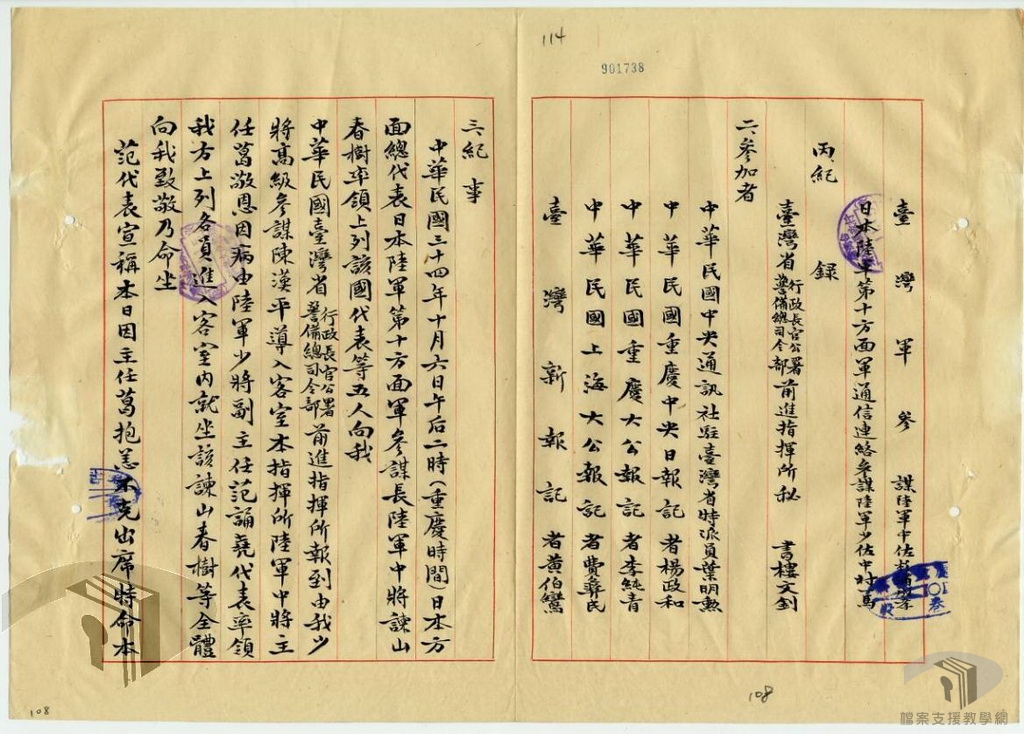 114
901738
臺灣軍參謀陸軍中佐
日本陸軍第十方面軍通信連絡參謀陸軍少佐中村
丙紀錄
臺灣省行政長官公署警備總司令部前進指揮所秘書樓文釗
二、參加者
中華民國中央通訊社駐臺灣省特派員葉明勲
中華民國重慶中央日報記者楊政和
中華民國重慶大公報記者李純青
中華民國上海大公報記者費彝民
臺灣新報記者黃伯鸞
三、紀事
中華民國三十四年十月六日午后二時(重慶時間)日本方
面總代表日本陸軍第十方面軍參謀長陸軍中將諫山
春樹率領上列該國代表等五人向我
中華民國臺灣省行政長官公署警備總司令部前進指揮所報到由我少
將高級參謀陳漢平導入客室本指揮所陸軍中將主
任葛敬恩因病由陸軍少將副主任范誦堯代表率領
我方上列各員進入客室內就坐該諫山春樹等全體
向我致敬乃命坐
范代表宣稱本日因主任葛抱恙不克出席特命本
108
108
檔案支援教學網